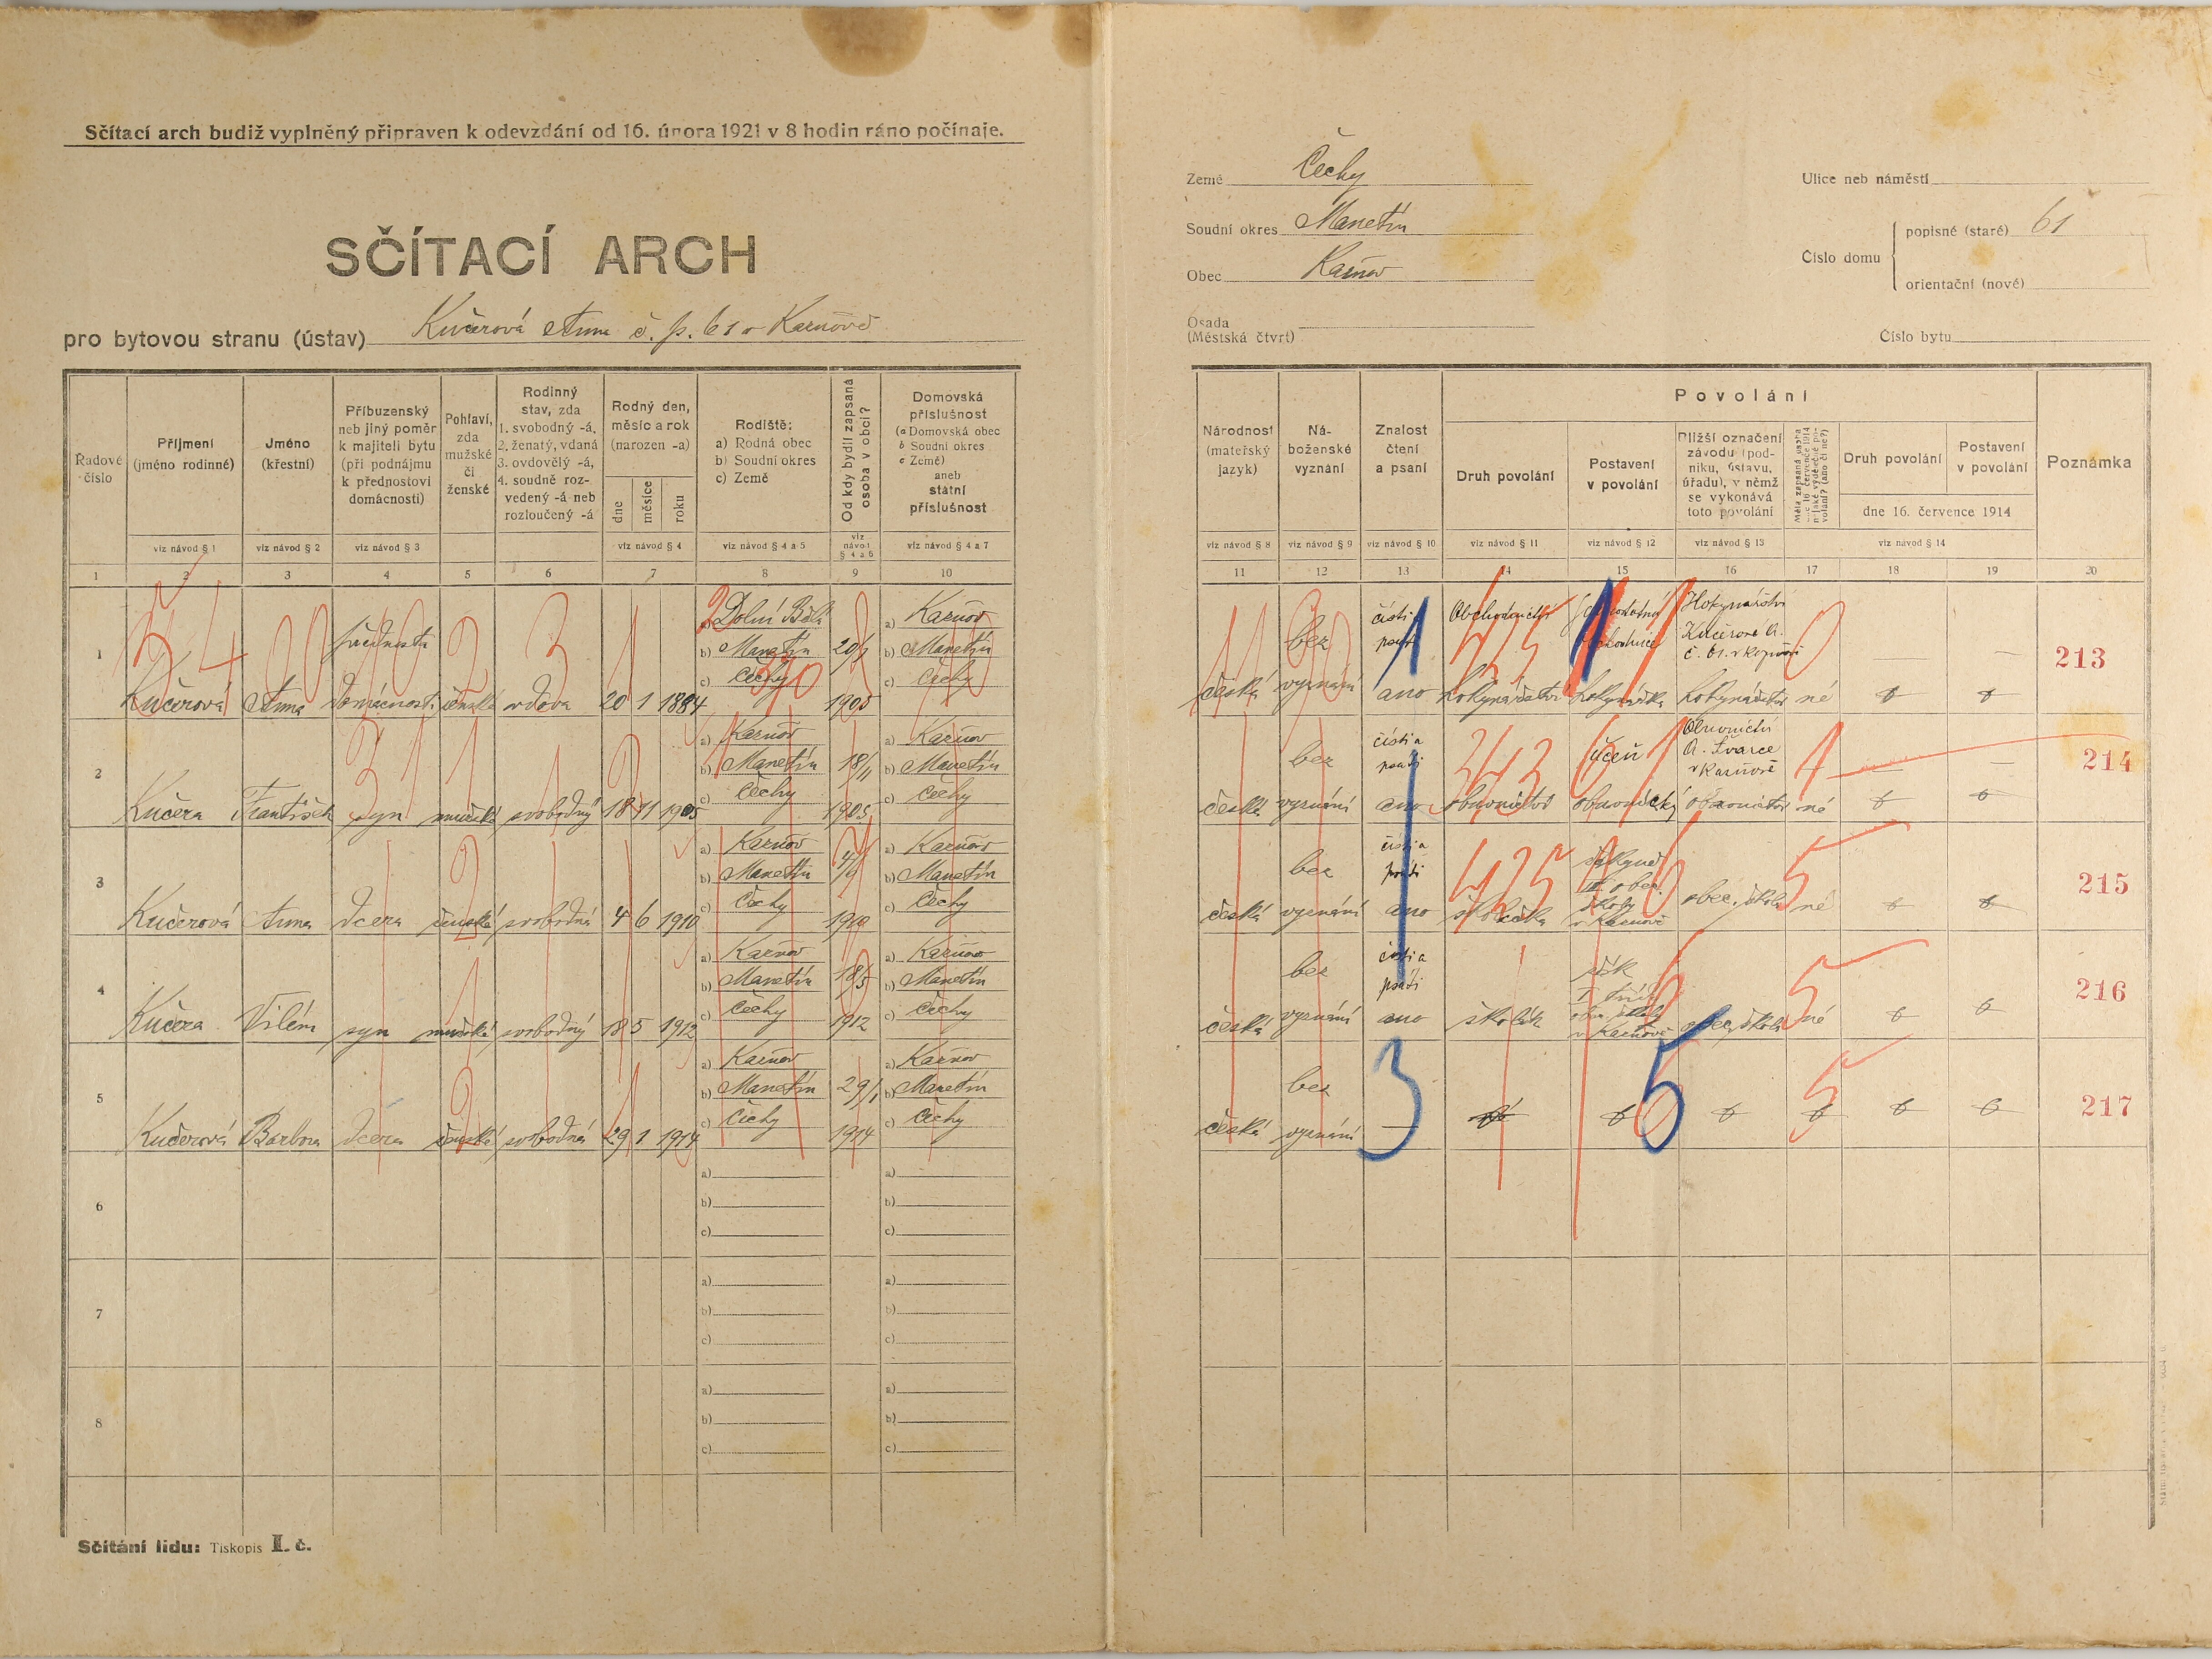 Sčítací arch budiž vyplněný připraven k odevzdání od 16. února 1921 v 8 hodin ráno počínaje.
SČÍTACÍ ARCH
pro bytovou stranu (ústav) Kučerová Anna č. p. 61 v Kaznově
Země Čechy
Soudní okres Manetín
Obec Kaznov
Osada
(Městská čtvrť)
Ulice neb náměstí
Číslo domu
popisné (staré) 61
orientační (nové)
Číslo bytu
Řadové číslo
Příjmení (jméno rodinné)
Jméno (křestní)
Příbuzenský neb jiný poměr k majiteli bytu (při podnájmu k přednostovi domácnosti)
Pohlaví, zda mužské či ženské
Rodinný stav, zda 1. svobodný -á, 2. ženatý, vdaná 3. ovdovělý -á, 4. soudně rozvedený -á neb rozloučený -á
Rodný den, měsíc a rok (narozen -a)
dne měsíce roku
Rodiště: a) Rodná obec b) Soudní okres c) Země
Od kdy bydlí zapsaná osoba v obci?
Domovská příslušnost (a Domovská obec b Soudní okres c Země) aneb státní příslušnost
Národnost (mateřský jazyk)
Náboženské vyznání
Znalost čtení a psaní
Povolání
Druh povolání
Postavení v povolání
Bližší označení závodu (podniku, ústavu, úřadu), v němž se vykonává toto povolání
Druh povolání
Postavení v povolání
dne 16. července 1914
Poznámka
viz návod § 1 viz návod § 2 viz návod § 3 viz návod § 4 viz návod § 4 a 5 viz návod § 4 a 6 viz návod § 4 a 7
viz návod § 8 viz návod § 9 viz návod § 10 viz návod § 11 viz návod § 12 viz návod § 13 viz návod § 14
1 2 3 4 5 6 7 8 9 10
11 12 13 14 15 16 17 18 19 20
1 Kučerová Anna přednosta domácnosti ženské vdova 20 1 1884
a) Dolní Bělá
b) Manetín
c) Čechy
20/1 1905
a) Kaznov
b) Manetín
c) Čechy
česká bez vyznání čísti a psáti ano
Obchodnictví hokynářství
samostatná obchodnice hokynářka
Hokynářství Kučerové A. č. 61. v Kaznově hokynářství
né
213
2 Kučera František syn mužské svobodný 18 11 1905
a) Kaznov
b) Manetín
c) Čechy
18/11 1905
a) Kaznov
b) Manetín
c) Čechy
česká bez vyznání čísti a psáti ano
obuvnictví
učeň obuvnický
Obuvnictví A. Švarce v Kaznově obuvnictví
né
214
3 Kučerová Anna dcera ženské svobodná 4 6 1910
a) Kaznov
b) Manetín
c) Čechy
4/6 1910
a) Kaznov
b) Manetín
c) Čechy
česká bez vyznání čísti a psáti ano
školačka
obec. školy v Kaznově
obec. škola
né
215
4 Kučera Vilém syn mužské svobodný 18 5 1912
a) Kaznov
b) Manetín
c) Čechy
18/5 1912
a) Kaznov
b) Manetín
c) Čechy
česká bez vyznání čísti a psáti ano
školák
žák
v Kaznově
obec. škola
né
216
5 Kučerová Barbora dcera ženské svobodná 29 1 1914
a) Kaznov
b) Manetín
c) Čechy
29/1 1914
a) Kaznov
b) Manetín
c) Čechy
česká bez vyznání
217
6
a)
b)
c)
a)
b)
c)
7
a)
b)
c)
a)
b)
c)
8
a)
b)
c)
a)
b)
c)
Sčítání lidu: Tiskopis I. č.